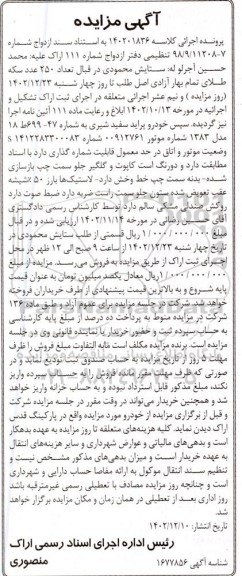 آگهی مزایده
پرونده اجرائی کلاسه ۱۴۰۲۰۱۸۳۶ به استناد سند ازدواج شماره
۹۸/۹/۱۱۲۰۸-۷ تنظیمی دفتر ازدواج شماره ۱۱۱ اراک علیه: محمد
حسین آجرلو له: ستایش محمودی در قبال تعداد ۲۵۰ عدد سکه
طلای تمام بهار آزادی اصل طلب تا روز چهار شنبه ۱۴۰۲/۱۲/۲۳
(روز مزایده) و نیم عشر اجرائی متعلقه در اجرای ثبت اراک تشکیل و
اجرائیه در مورخه ۱۴۰۲/۰۱/۱۳ ابلاغ و رعایت ماده ۱۱۱ آئین نامه اجرا
نیز گردیده، سپس خودرو پراید سفید شیری به شماره ۴۷-۶۹۱ط۱۸
مدل ۱۳۸۳ شماره موتور ۰۰۹۱۲۷۶۱ شماره s۱۴۱۲۲۸۳۳۰۰۰۸۳
وضعیت موتور و اتاق در حد معمول قابلیت شماره گذاری دارد با اسناد
مطابقت دارد و دورنگ است کاپوت و گلگیر جلو سمت چپ بازسازی
شده- بدنه سمت چپ خط وخش دارد- لاستیک‌ها بارز ۵۰ است شیشه
عقب تعویض شده ستون جلو سمت راست ضربه دارد ضبط صوت دارد
روکش صندلی دارد و سالم دارد توسط کارشناس رسمی دادگستری
آقای در مورخه ۱۴۰۲/۱۱/۱۴ ارزیابی شده و در قبال
مبلغ ۱/۰۰۰/۰۰۰/۰۰۰ ریال قسمتی از طلب ستایش محمودی در
تاریخ چهار شنبه ۱۴۰۲/۱۲/۲۳ از ساعت ۹ صبح الی ۱۲ ظهر در محل
اجرای ثبت اراک از طریق مزایده به فروش می‌رسد. مزایده از مبلغ
۱/۰۰۰/۰۰۰/۰۰۰ ریال معادل یکصد میلیون تومان به عنوان قیمت
پایه شروع و به بالاترین قیمت پیشنهادی از طرف خریداران فروخته
خواهد شد. شرکت در جلسه مزایده برای عموم آزاد و طبق ماده ۱۳۶
شرکت در مزایده منوط به پرداخت ده درصد از مبلغ پایه کارشناسی
به حساب سپرده ثبت و حضور خریدار یا نماینده قانونی وی در جلسه
مزایده است. برنده مزایده مکلف است مابه التفاوت مبلغ فروش را ظرف
مهلت ۵ روز از تاریخ مزایده به حساب صندوق ثبت تودیع نماید و در
صورتی که ظرف مهلت مقرر مانده فروش را به حساب سپرده واریز
نکند، مبلغ مذکور قابل استرداد نبوده و به حساب خزانه واریز خواهد
شد و همچنین خریدار می‌تواند در وقت مقرر در جلسه مزایده شرکت
و قبل از برگزاری مزایده از خودرو مورد مزایده واقع در پارکینگ قدس
اراک دیدن نماید. کلیه هزینه‌های متعلقه تا روز مزایده به عهده بدهکار
است و بدهی‌های مالیاتی و عوارض شهرداری و سایر هزینه‌های انتقال
به عهده خریدار است و میزان بدهی‌های مذکور مشخص نیست و
تنظیم سند انتقال موکول به ارائه مفاصا حساب دارایی و شهرداری
است و چنانچه روز مزایده مصادف با تعطیلی رسمی غیرمترقبه باشد
روز اداری بعد از تعطیلی در همان زمان و مکان مزایده برگزار خواهد
شد.
تاریخ انتشار: ۱۴۰۲/۱۲/۱۰
رئیس اداره اجرای اسناد رسمی اراک
شناسه آگهی ۱۶۷۷۸۵۶ منصوری